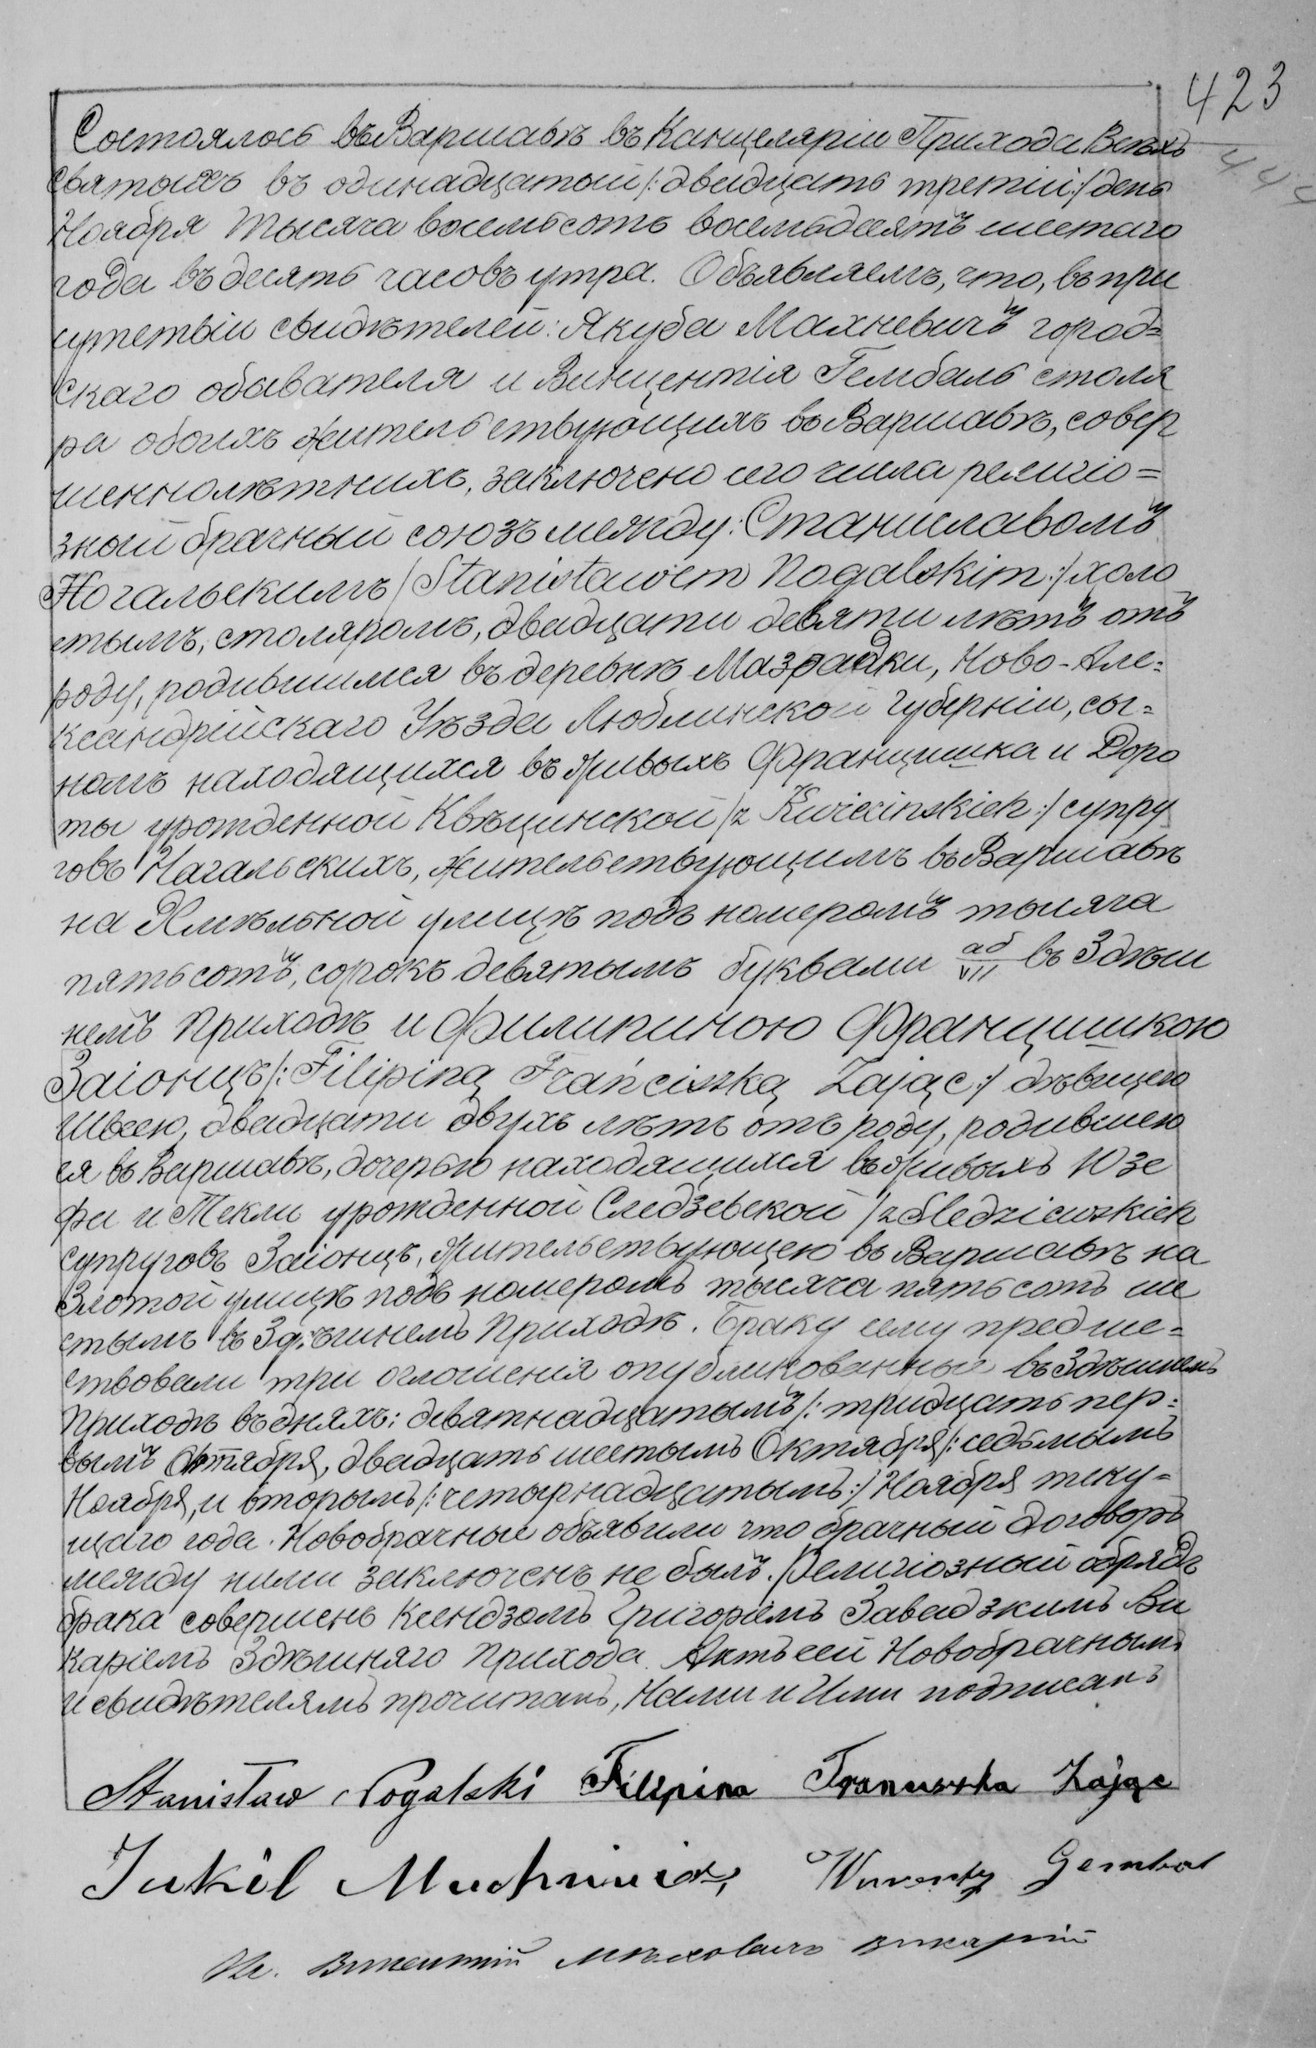 423
Состоялось въ Варшавѣ въ Канцеляріи Прихода Всѣхъ
Святыхъ въ одинадцатый /: двадцать третій :/ день
Ноября тысяча восемьсотъ восемьдесятъ шестаго
года въ десять часовъ утра. Объявляемъ, что, въ при
сутствіи свидѣтелей: Якуба Махневичъ город=
скаго обывателя и Винцентія Гембаль столя
ра обоихъ жительствующихъ въ Варшавѣ, совер
шеннолѣтнихъ, заключено сего числа религіо=
зный брачный союзъ между: Станиславомъ
Ногальскимъ /Stanisławem Nogalskim :/ холо
стымъ, столяромъ, двадцати девяти лѣтъ отъ
роду, родившимся въ деревнѣ Мазрадки, Ново-Але=
ксандрійскаго Уѣзда Люблинской Губерніи, сы=
номъ находящихся въ живыхъ Францишка и Доро
ты урожденной Квѣцинской /z Kwiecinskich :/ супру
говъ Нагальскихъ, жительствующимъ въ Варшавѣ
на Хмѣльной улицѣ подъ номеромъ тысяча
пятьсотъ, сорокъ девятымъ буквами аб/VII въ Здѣш
немъ Приходѣ и Филипиною Францишкою
Заіонцъ /: Filipiną Franciszką Zając :/ дѣвицею
Швеею, двадцати двухъ лѣтъ отъ роду, родившею
ся въ Варшавѣ, дочерью находящихся въ живыхъ Юзе
фа и Текли урожденной Следзевской /z Sledziewskich
супруговъ Заіонцъ, жительствующею въ Варшавѣ на
Злотой улицѣ подъ номеромъ тысяча пятьсотъ ше
стымъ въ Здѣшнемъ Приходѣ. Браку сему предше=
ствовали три оглошенія опубликованные въ Здѣшнемъ
Приходѣ въ дняхъ: девятнадцатымъ /: тридцать пер=
вымъ Октября, двадцать шестымъ Октября /: седьмымъ
Ноября, и вторымъ /: четырнадцатымъ :/ Ноября теку=
щаго года. Новобрачные объявили что брачный договоръ
между ними заключенъ не былъ. Религіозный обрядъ
брака совершенъ Ксендзомъ Григоріемъ Завадзкимъ Ви
каріемъ Здѣшняго Прихода. Актъ сей Новобрачнымъ
и свидѣтелямъ прочитанъ, Нами и Ими подписанъ
Stanisław Nogalski Filipina Franciszka Zając
Gembal
Викентій викарій